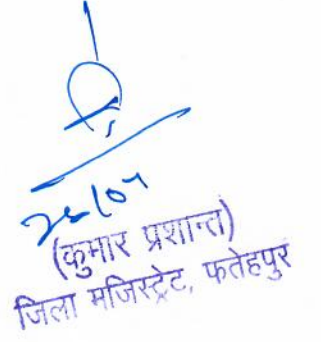 (कुमार प्रशान्त)
जिला मजिस्ट्रेट, फतेहपुर